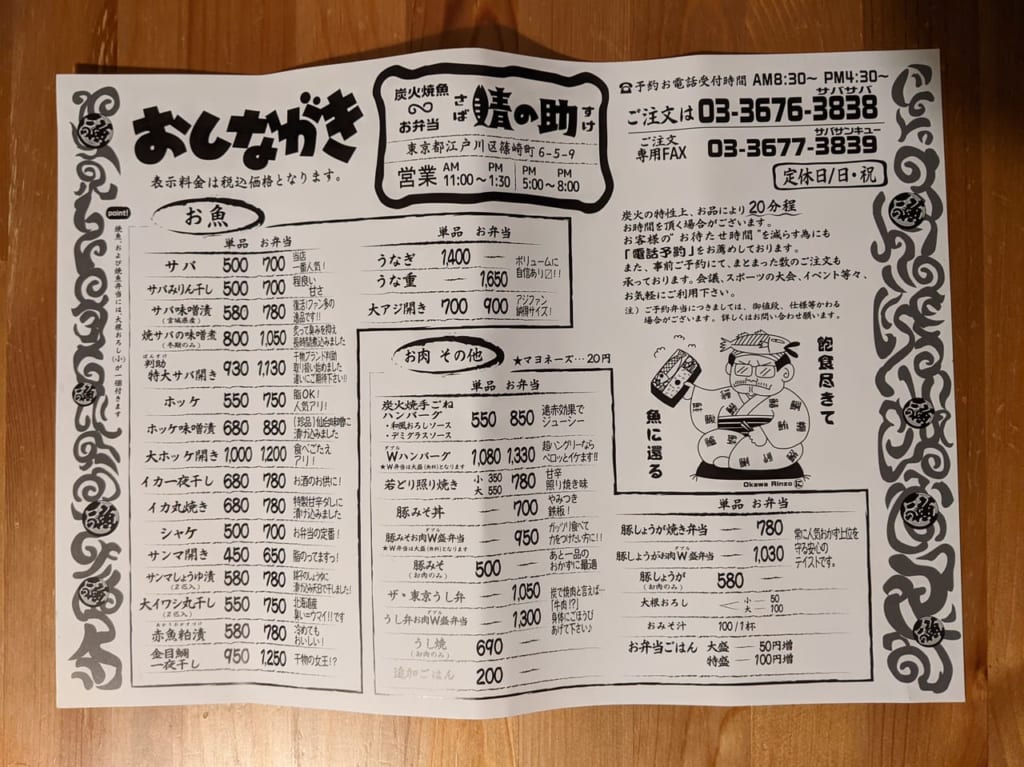 おしながき
表示料金は税込価格となります。
炭火焼魚
お弁当
さば
鯖の助
すけ
東京都江戸川区篠崎町6-5-9
営業 AM 11:00〜PM 1:30 PM 5:00〜PM 8:00
☎予約お電話受付時間 AM8:30〜 PM4:30〜
サバサバ
ご注文は 03-3676-3838
サバサンキュー
ご注文専用FAX 03-3677-3839
定休日/日・祝
炭火の特性上、お品により20分程
お時間を頂く場合がございます。
お客様の"お待たせ時間"を減らす為にも
「電話予約」をお薦めしております。
また、事前ご予約にて、まとまった数のご注文も
承っております。会議、スポーツの大会、イベント等々、
お気軽にご利用下さい。
注）ご予約弁当につきましては、御値段、仕様等かわる
場合がございます。詳しくはお問い合わせ願います。
飽食尽きて
魚に還る
Okawa Rinzo
point!
焼魚、および焼魚弁当には、大根おろし(小)が一個付きます
お魚
単品 お弁当
サバ 500 700 当店一番人気！
サバみりん干し 500 700 程良い甘さ
サバ味噌漬 (宮城県産) 580 780 復活!ファン多の逸品です!!
焼サバの味噌煮 (冬期のみ) 800 1,050 炙って臭みを抑え長時間煮込みました
判助 ばんすけ 特大サバ開き 930 1,130 干物ブランド判助取り扱い始めました違いにご期待下さい!!
ホッケ 550 750 脂OK!人気アリ!
ホッケ味噌漬 680 880 (珍品)仙台味噌に漬け込みました
大ホッケ開き 1,000 1,200 食べごたえアリ!
イカ一夜干し 680 780 お酒のお供に!
イカ丸焼き 680 780 特製甘辛ダレに漬け込みました
シャケ 500 700 お弁当の定番!
サンマ開き 450 650 脂のってますっ!
サンマしょうゆ漬 (2匹入) 580 780
大イワシ丸干し (2匹入) 550 750 北海道産 臭い=ウマイ!!です
赤魚粕漬 あかうおかすづけ 580 780 冷めてもおいしい!
金目鯛一夜干し 950 1,250 干物の女王!?
単品 お弁当
うなぎ 1,400 —
うな重 — 1,650
ボリュームに自信あり〼!!
大アジ開き 700 900 アジファン納得サイズ!
お肉 その他
★マヨネーズ…20円
単品 お弁当
炭火焼手ごねハンバーグ 550 850 遠赤効果でジューシー
・和風おろしソース
・デミグラスソース
Wハンバーグ ダブル 1,080 1,330 超ハングリーならペロッとイケます!!
★W弁当は大盛(無料)となります
若どり照り焼き 小 350 大 550 780 甘辛照り焼き味
豚みそ丼 — 700 やみつき鉄板!
豚みそお肉W盛弁当 ダブル — 950 ガッツリ食べて力をつけたい方に!!
★W弁当は大盛(無料)となります
豚みそ (お肉のみ) 500 — あと一品のおかずに最適
ザ・東京うし弁 — 1,050
うし弁お肉W盛弁当 ダブル — 1,300
炭で焼肉と言えば…「牛肉!?」身体にごほうびあげて下さい♪
うし焼 (お肉のみ) 690 —
追加ごはん 200 —
単品 お弁当
豚しょうが焼き弁当 — 780
豚しょうがお肉W盛弁当 ダブル — 1,030
常に人気おかず上位を守る安心のテイストです。
豚しょうが (お肉のみ) 580 —
大根おろし 小 — 50 大 — 100
おみそ汁 100/1杯
お弁当ごはん 大盛 — 50円増
特盛 — 100円増